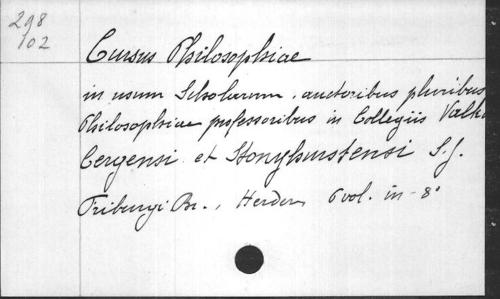 298
102
Cursus Philosophiae
in usum Scholarum. auctoribus pluribus
Philosophiae professoribus in Collegiis Valk
bergensi et Stonyhurstensi S.J.
Friburgi Br., Herder, 6 vol. in-8°